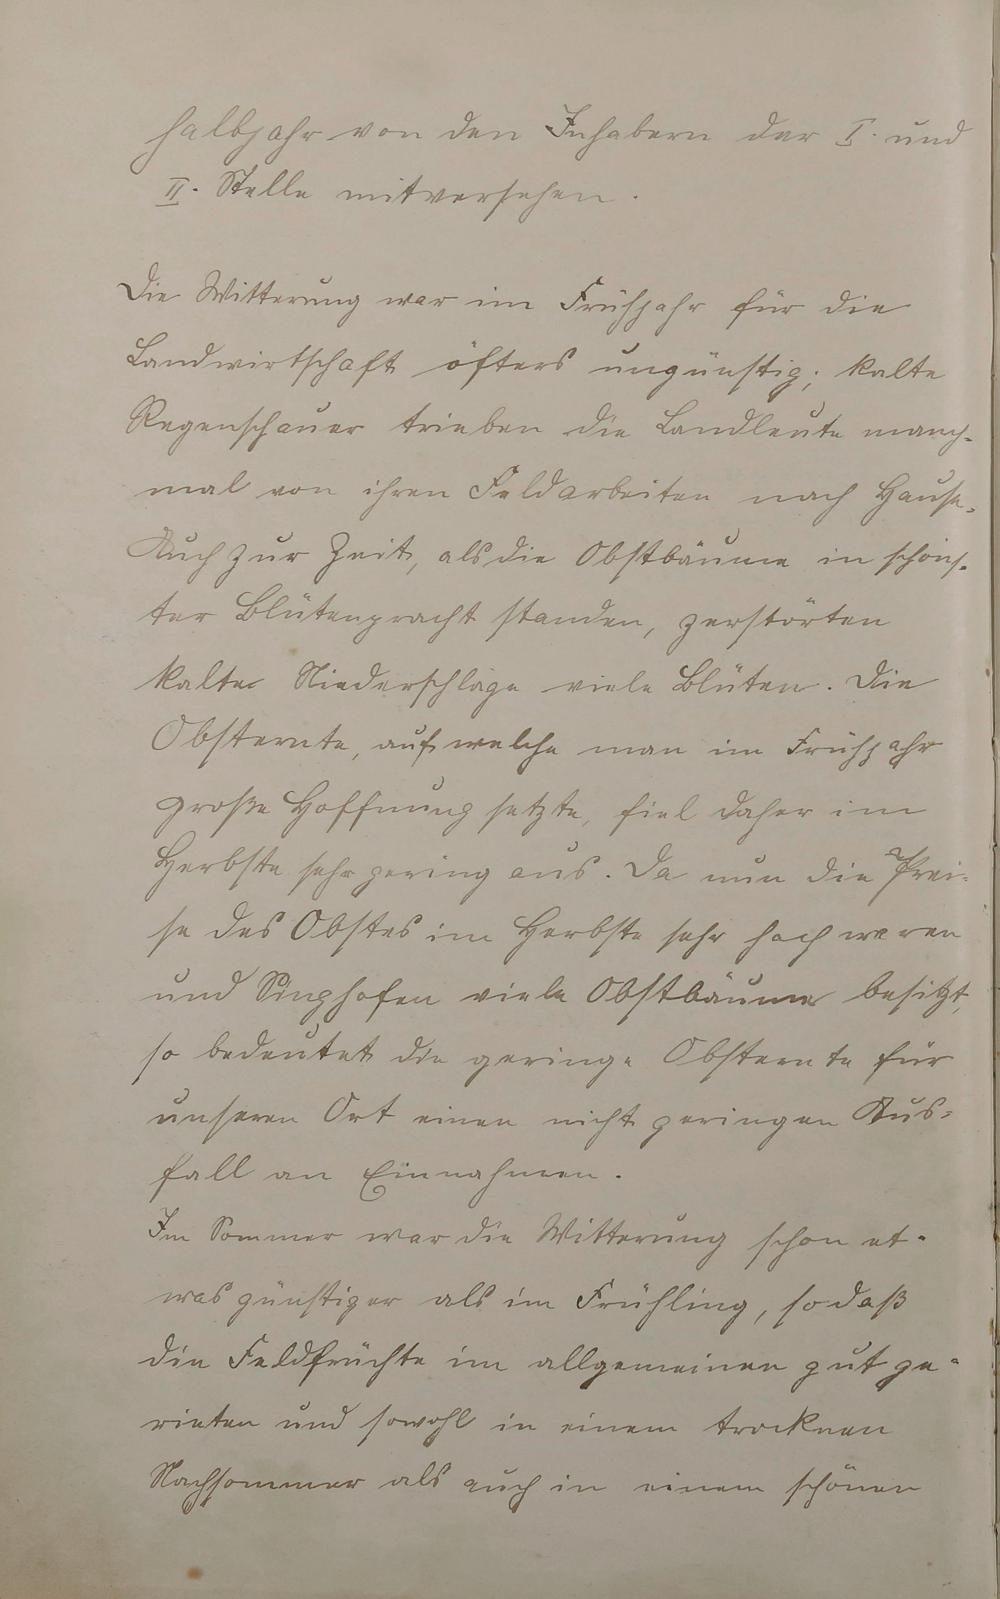 halbjahr von den Inhabern der I. und
II. Stelle mitversehen.
Die Witterung war im Frühjahr für die
Landwirtschaft öfters ungünstig; kalte
Regenschauer trieben die Landleute manch-
mal von ihren Feldarbeiten nach Hause.
Auch zur Zeit, als die Obstbäume in schöns-
ter Blütenpracht standen, zerstörten
kalte Niederschläge viele Blüten. Die
Obsternte, auf welche man im Frühjahr
große Hoffnung setzte, fiel daher im
Herbste sehr gering aus. Da nun die Prei-
se des Obstes im Herbste sehr hoch waren
und Singhofen viele Obstbäume besitzt,
so bedeutet die geringe Obsternte für
unseren Ort einen nicht geringen Aus-
fall an Einnahmen.
Im Sommer war die Witterung schon et-
was günstiger als im Frühling, so daß
die Feldfrüchte im allgemeinen gut ge-
rieten und sowohl in einem trocknen
Nachsommer als auch in einem schönen